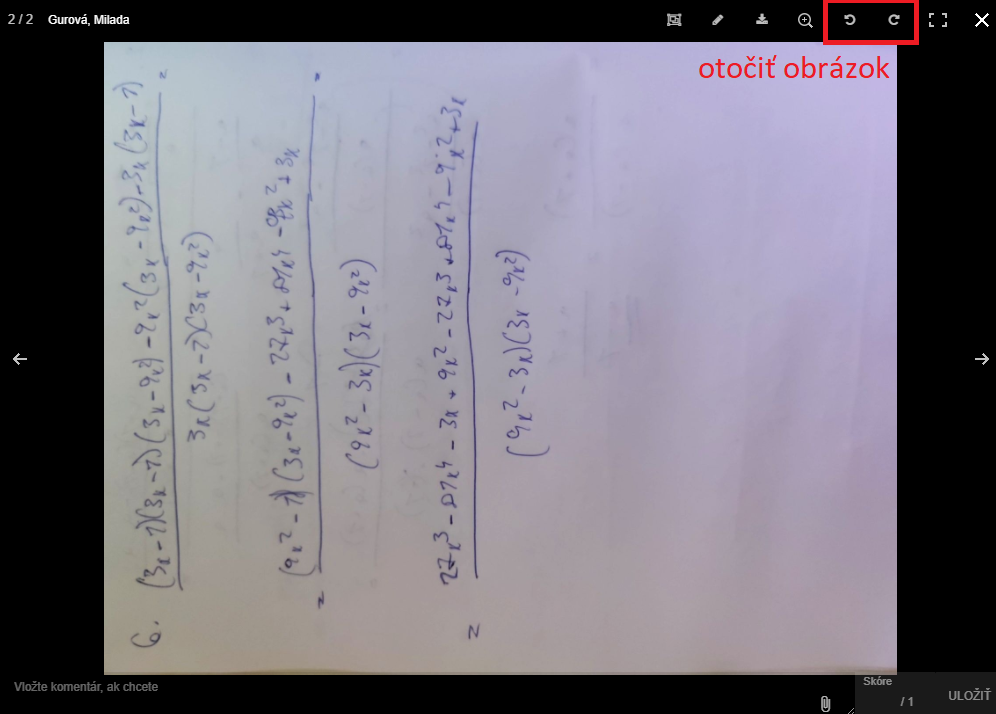 2 / 2 Gurová, Milada
otočiť obrázok
6. (3x-1)(3x-1)(3x-9x²)-9x²(3x-9x²)-3x(3x-1) =
3x(3x-1)(3x-9x²)
= (9x²-1)(3x-9x²)-27x³+81x⁴-9x²+3x =
(9x²-3x)(3x-9x²)
= 27x³-81x⁴-3x+9x²-27x³+81x⁴-9x²+3x
(9x²-3x)(3x-9x²)
Vložte komentár, ak chcete
Skóre
/ 1
ULOŽIŤ